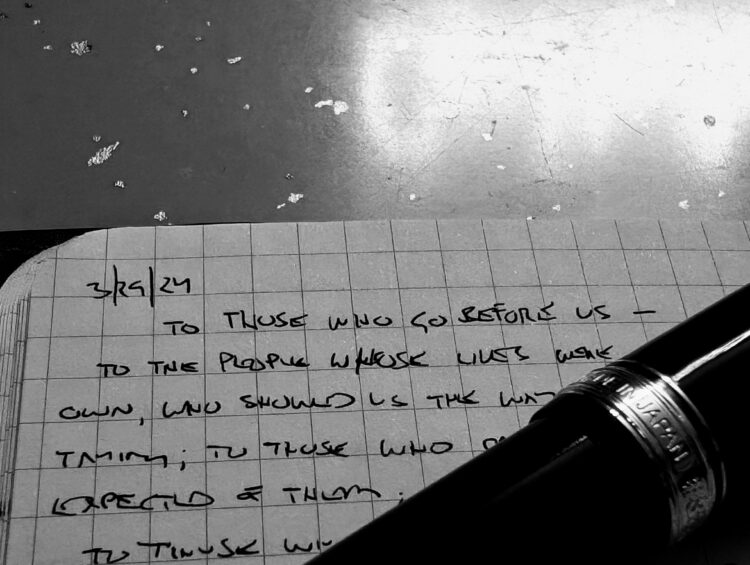 3/29/24
TO THOSE WHO GO BEFORE US —
TO THE PEOPLE WHOSE LIVES WERE
OWN, WHO SHOWED US THE
TO THOSE WHO
EXPECTED OF THEM;
TO THOSE
IN JAPAN